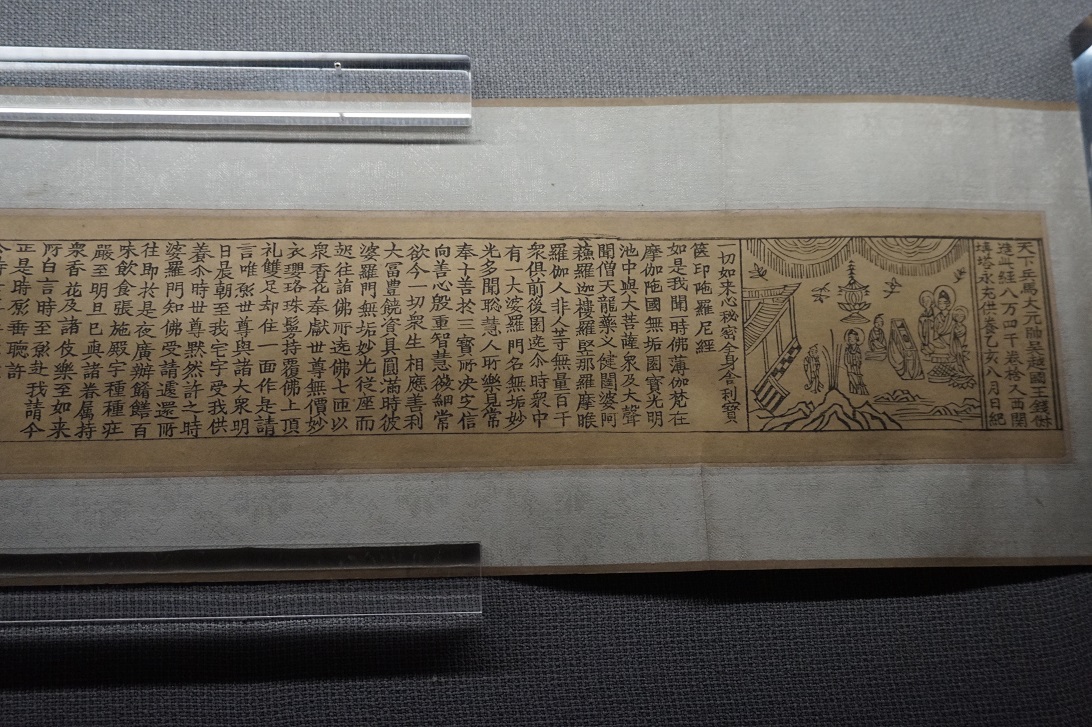 天下兵馬大元帥吳越國王錢俶
造此經八万四千卷捨入西關
塼塔永充供養乙亥八月日紀
一切如来心秘密全身舍利寶
篋印陁羅尼經
如是我聞一時佛薄伽梵在
摩伽陁國無垢園寶光明
池中與大菩薩衆及大聲
聞僧天龍藥叉健闥婆阿
蘓羅迦樓羅緊那羅摩睺
羅伽人非人等無量百千
衆俱前後圍遶尒時衆中
有一大婆羅門名無垢妙
光多聞聡慧人所樂見常
奉十善於三寶所决定信
向善心殷重智慧微細常
欲令一切衆生相應善利
大冨豊饒資具圓滿時彼
婆羅門無垢妙光從座而
起往詣佛所遶佛七匝以
衆香花奉獻世尊無價妙
衣瓔珞珠鬘持覆佛上頂
礼雙足却住一面作是請
言唯願世尊與諸大衆明
日晨朝至我宅宇受我供
養尒時世尊黙然許之時
婆羅門知佛受請遽還所
住即於是夜廣辦餚饍百
味飲食張施殿宇種種莊
嚴至明旦已與諸眷屬持
衆香花及諸伎樂至如来
所白言時至願赴我請今
正是時願垂聽許